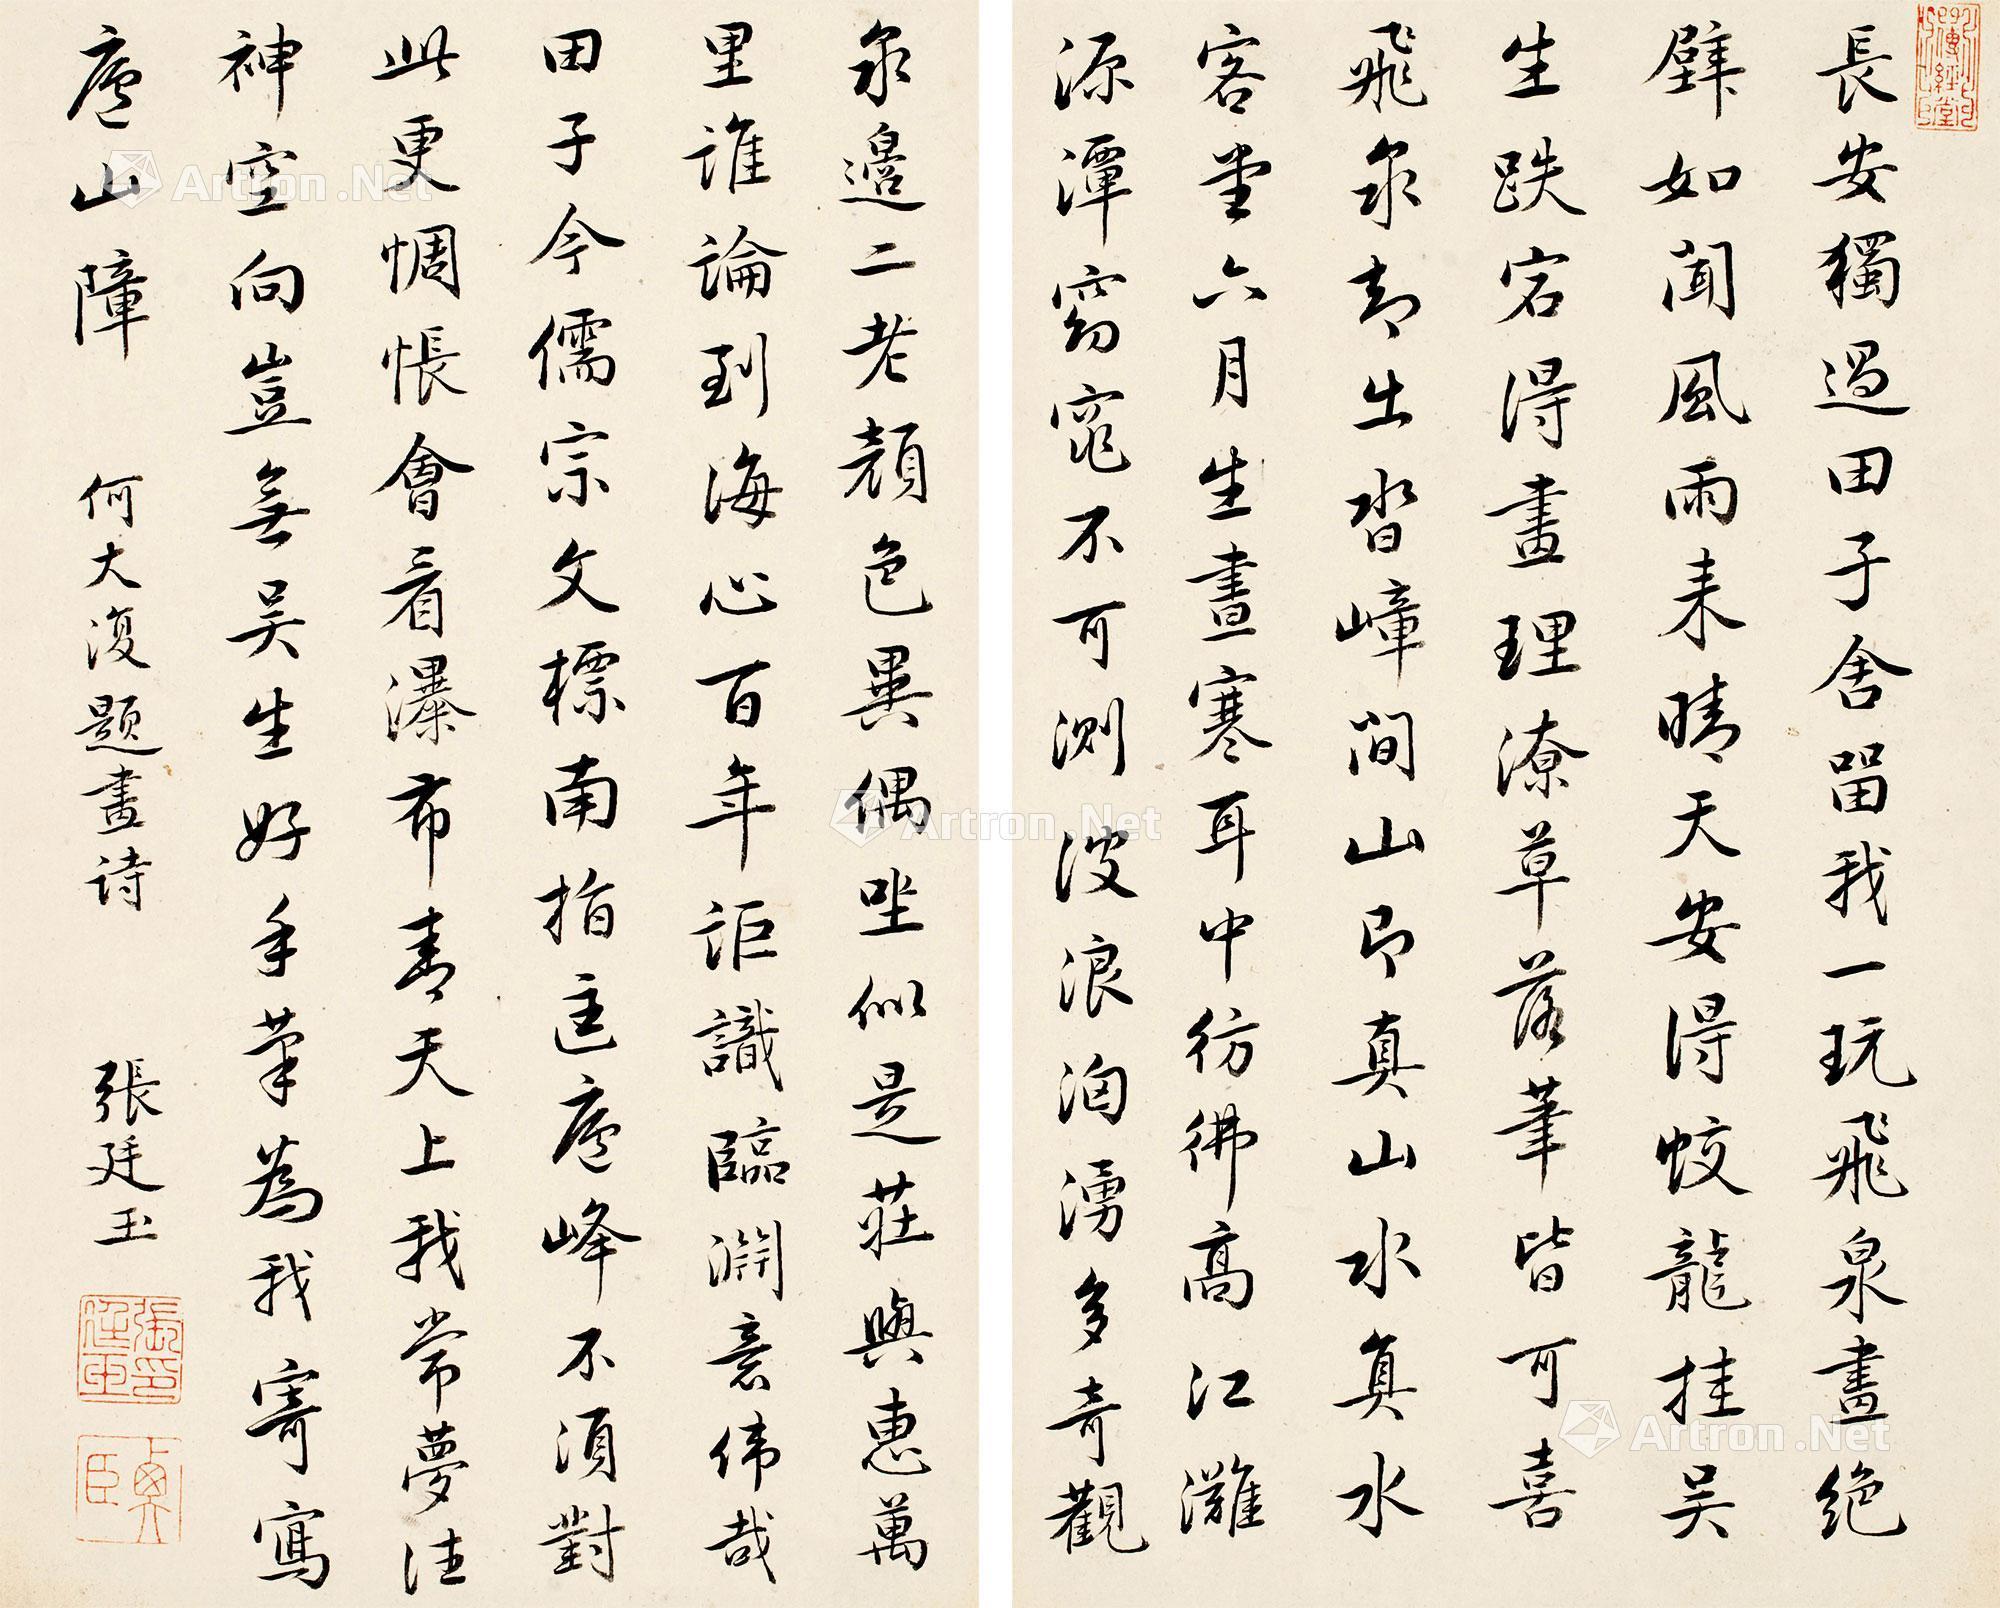 長安獨過田子舍留我一玩飛泉畫絕
壁如聞風雨來晴天安得蛟龍挂吳
生跌宕得畫理潦草落筆皆可喜
飛泉却出沓嶂間山即真山水真水
客堂六月生晝寒耳中彷彿高江灘
源潭窈窕不可測波浪洶湧多奇觀
泉邊二老顏色異偶坐似是莊與惠萬
里誰論到海心百年詎識臨淵意偉哉
田子今儒宗文標南指匡廬峰不須對
此更惆悵會看瀑布青天上我常夢往
神空向豈無吳生好手筆為我寄寫
廬山障 何大復題畫诗 張廷玉
張廷玉印
臣
傳經堂
Artron.Net
Artron.Net
Artron.Net